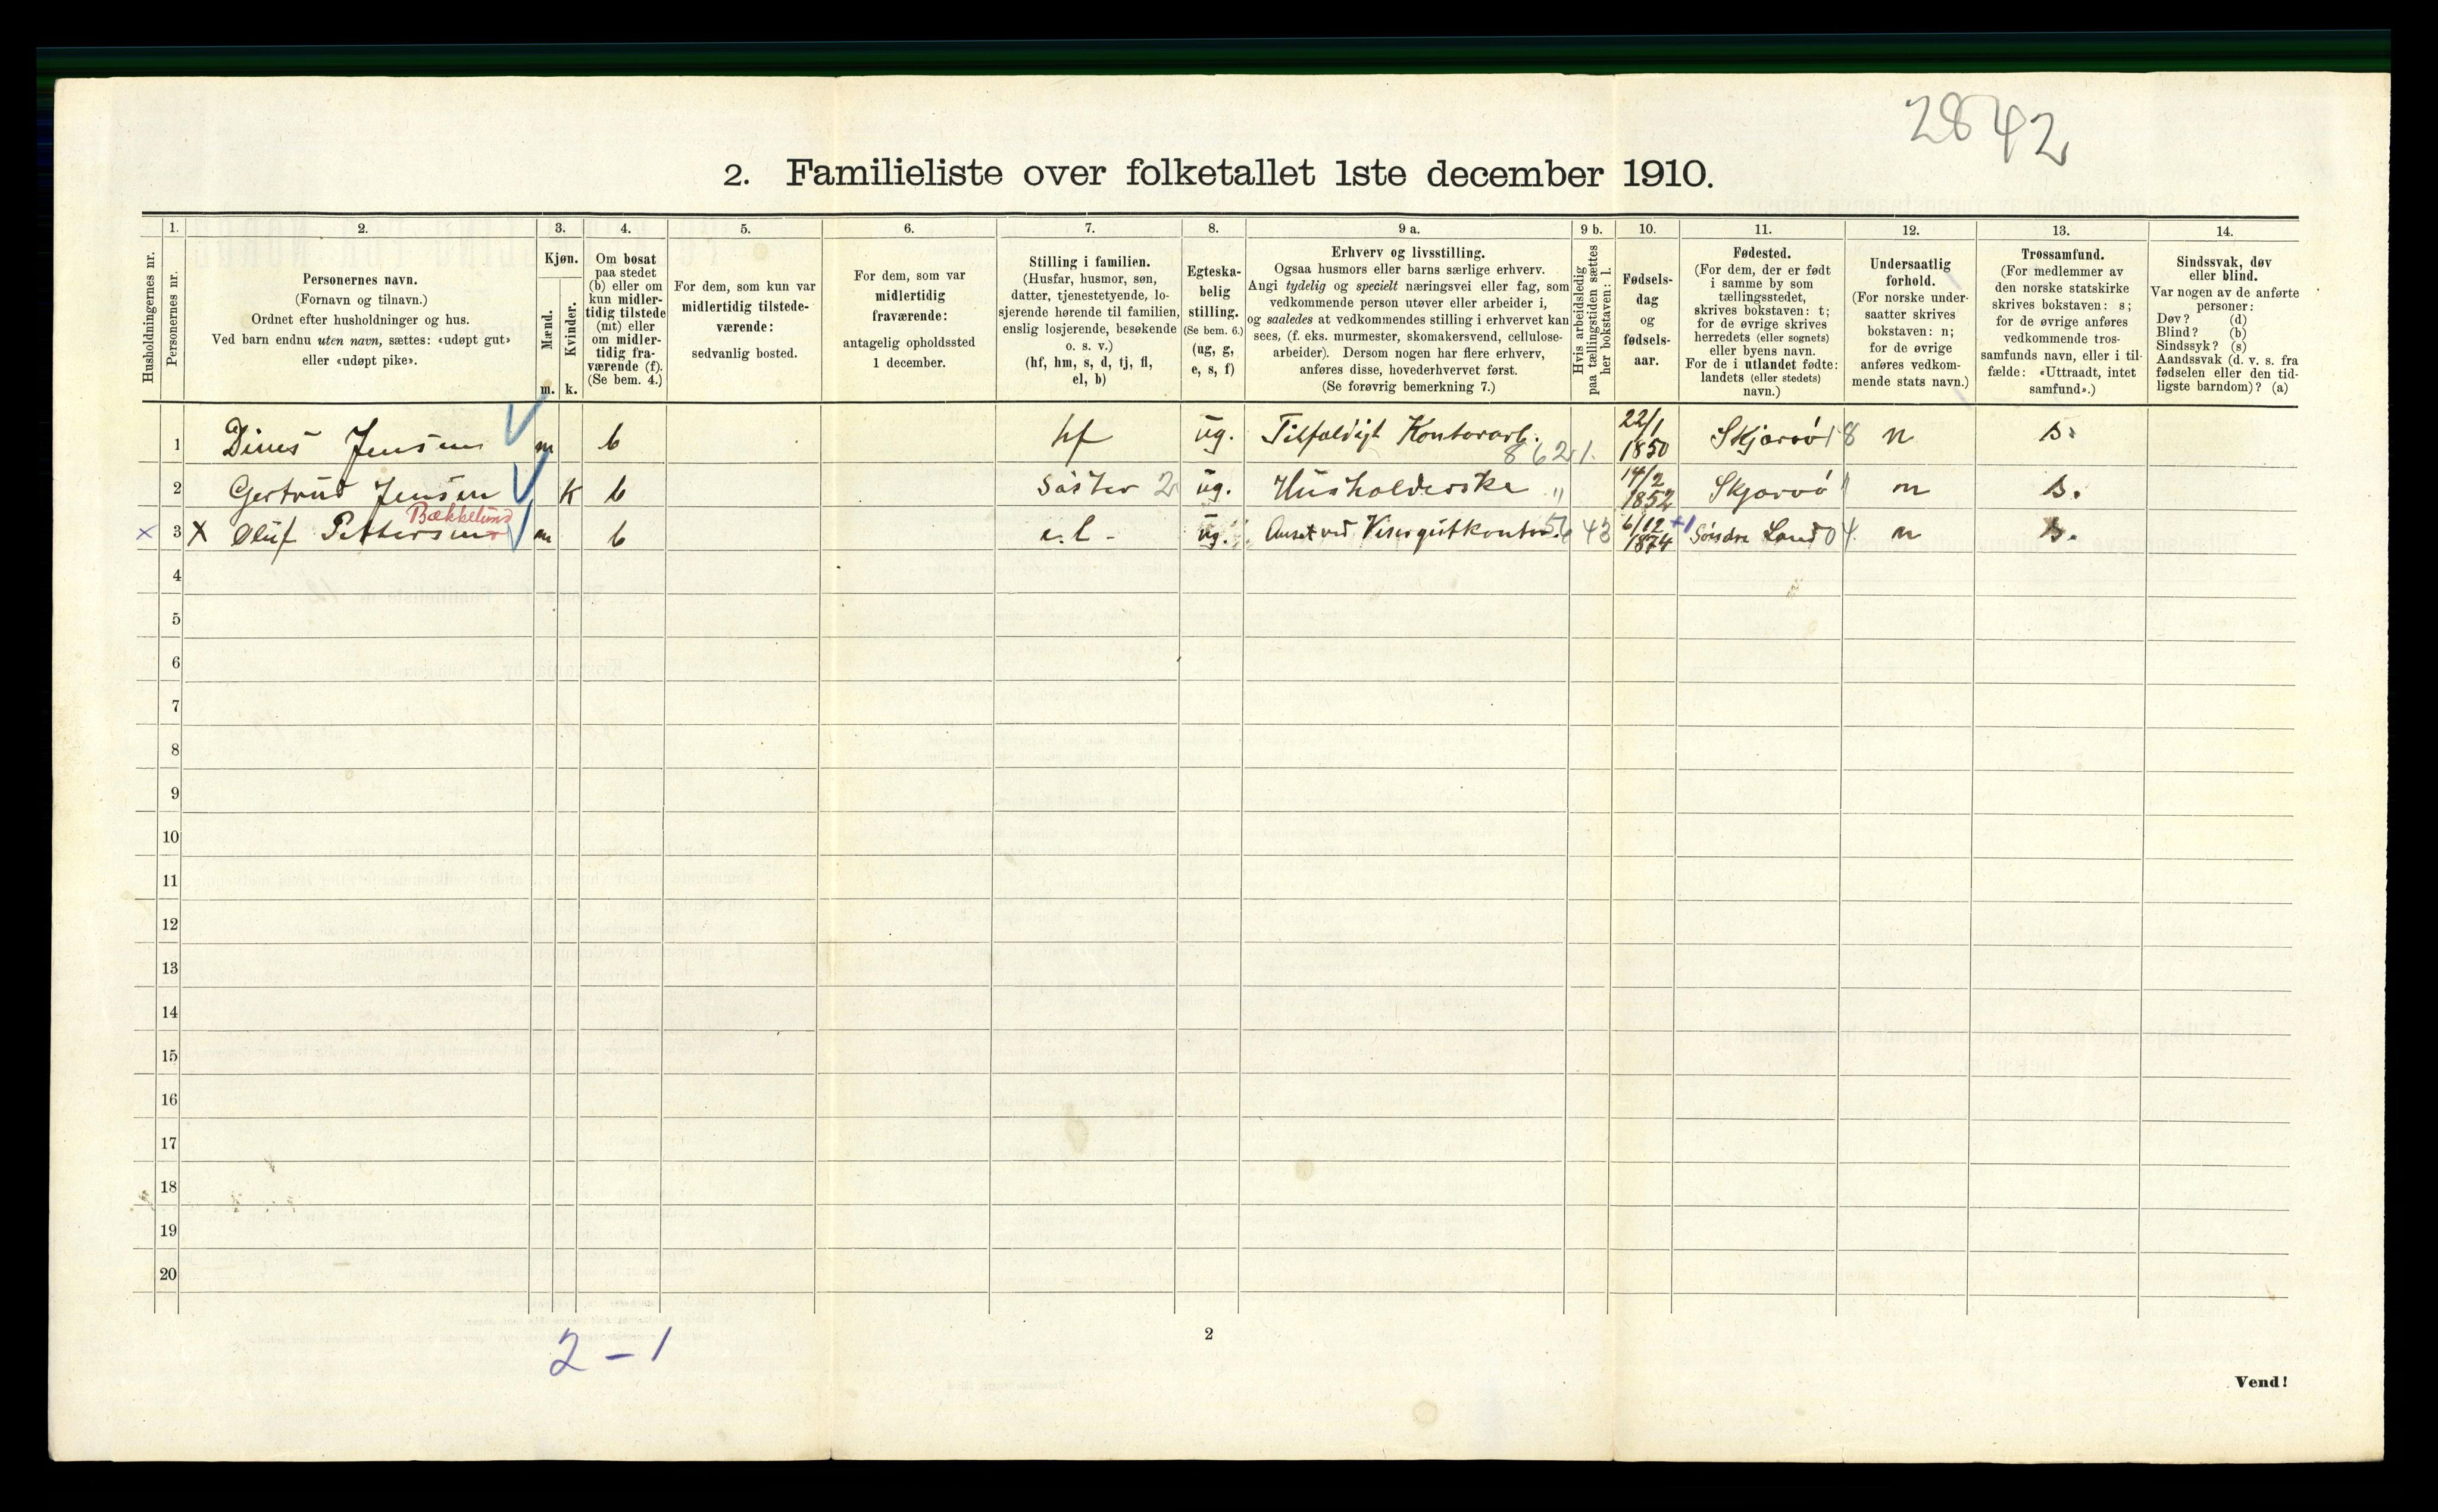 2842
2. Familieliste over folketallet 1ste december 1910.
Husholdningernes nr.
1.
Personernes nr.
2.
Personernes navn.
(Fornavn og tilnavn.)
Ordnet efter husholdninger og hus.
Ved barn endnu uten navn, sættes: «udøpt gut»
eller «udøpt pike».
3.
Kjøn.
Mænd.
m.
Kvinder.
k.
4.
Om bosat
paa stedet
(b) eller om
kun midler-
tidig tilstede
(mt) eller
om midler-
tidig fra-
værende (f).
(Se bem. 4.)
5.
For dem, som kun var
midlertidig tilstede-
værende:
sedvanlig bosted.
6.
For dem, som var
midlertidig
fraværende:
antagelig opholdssted
1 december.
7.
Stilling i familien.
(Husfar, husmor, søn,
datter, tjenestetyende, lo-
sjerende hørende til familien,
enslig losjerende, besøkende
o. s. v.)
(hf, hm, s, d, tj, fl,
el, b)
8.
Egteska-
belig
stilling.
(Se bem. 6.)
(ug, g,
e, s, f)
9 a.
Erhverv og livsstilling.
Ogsaa husmors eller barns særlige erhverv.
Angi tydelig og specielt næringsvei eller fag, som
vedkommende person utøver eller arbeider i,
og saaledes at vedkommendes stilling i erhvervet kan
sees, (f. eks. murmester, skomakersvend, cellulose-
arbeider). Dersom nogen har flere erhverv,
anføres disse, hovederhvervet først.
(Se forøvrig bemerkning 7.)
9 b.
Hvis arbeidsledig
paa tællingstiden sættes
her bokstaven: l.
10.
Fødsels-
dag
og
fødsels-
aar.
11.
Fødested.
(For dem, der er født
i samme by som
tællingsstedet,
skrives bokstaven: t;
for de øvrige skrives
herredets (eller sognets)
eller byens navn.
For de i utlandet fødte:
landets (eller stedets)
navn.)
12.
Undersaatlig
forhold.
(For norske under-
saatter skrives
bokstaven: n;
for de øvrige
anføres vedkom-
mende stats navn.)
13.
Trossamfund.
(For medlemmer av
den norske statskirke
skrives bokstaven: s;
for de øvrige anføres
vedkommende tros-
samfunds navn, eller i til-
fælde: «Uttraadt, intet
samfund».)
14.
Sindssvak, døv
eller blind.
Var nogen av de anførte
personer:
Døv? (d)
Blind? (b)
Sindssyk? (s)
Aandssvak (d. v. s. fra
fødselen eller den tid-
ligste barndom)? (a)
1 Dines Jensen m b hf ug. Tilfældigt Kontorarb. 862 1. 22/1 1850 Skjærvö 18 n s.
2 Gertrud Jensen K b Söster 2 ug. Husholderske " 14/2 1852 Skjervö " n s.
Bækkelund
x 3 X Oluf Pettersen m b e.l - ug. Ansat ved Visergutkontor. 56 43 6/12 +1 1874 Söndre Land 04. n s.
4
5
6
7
8
9
10
11
12
13
14
15
16
17
18
19
20
2 - 1
2
Vend!